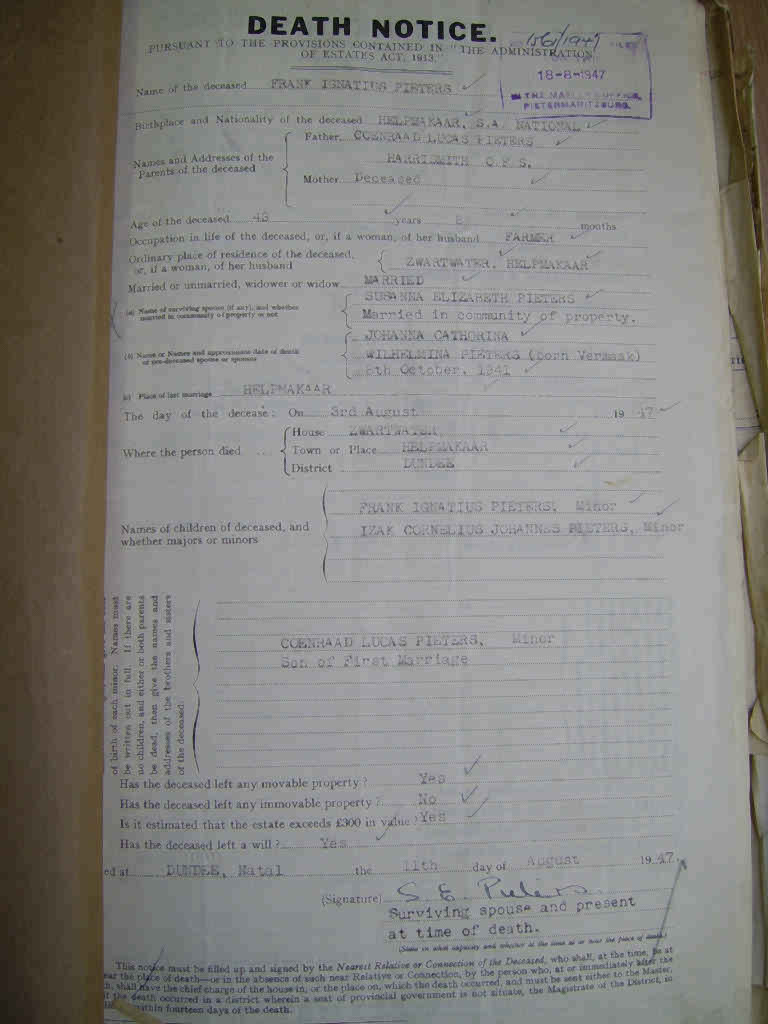 DEATH NOTICE.
PURSUANT TO THE PROVISIONS CONTAINED IN "THE ADMINISTRATION
OF ESTATES ACT, 1913."
18-8-1947
IN THE MASTER'S OFFICE,
PIETERMARITZBURG.
Name of the deceased FRANK IGNATIUS PIETERS
Birthplace and Nationality of the deceased HELPMAKAAR, S.A. NATIONAL
Names and Addresses of the Parents of the deceased
Father, COENRAAD LUCAS PIETERS
HARRISMITH O.F.S.
Mother Deceased
Age of the deceased 43 years 8 months
Occupation in life of the deceased, or, if a woman, of her husband FARMER
Ordinary place of residence of the deceased, or, if a woman, of her husband
ZWARTWATER, HELPMAKAAR
Married or unmarried, widower or widow MARRIED
(a) Name of surviving spouse (if any), and whether married in community of property or not
SUSANNA ELIZABETH PIETERS
Married in community of property.
(b) Name or Names and approximate date of death of pre-deceased spouse or spouses
JOHANNA CATHORINA
WILHELMINA PIETERS (born Vermaak)
8th October, 1941
(c) Place of last marriage HELPMAKAAR
The day of the decease: On 3rd August 1947
Where the person died ...
House ZWARTWATER
Town or Place HELPMAKAAR
District DUNDEE
Names of children of deceased, and whether majors or minors
FRANK IGNATIUS PIETERS, Minor
IZAK CORNELIUS JOHANNES PIETERS, Minor
of birth of each minor. Names must
be written out in full. If there are
no children, and either or both parents
be dead, then give the names and
addresses of the brothers and sisters
of the deceased.
COENRAAD LUCAS PIETERS, Minor
Son of First Marriage
Has the deceased left any movable property? Yes
Has the deceased left any immovable property? No
Is it estimated that the estate exceeds £300 in value? Yes
Has the deceased left a will? Yes
ed at DUNDEE, Natal the 11th day of August 1947.
(Signature) S. E. Pieters
Surviving spouse and present
at time of death.
(State in what capacity and whether at the time at or near the place of death.)
This notice must be filled up and signed by the Nearest Relative or Connection of the Deceased, who shall, at the time, be at
near the place of death—or in the absence of such near Relative or Connection, by the person who, at or immediately after the
shall have the chief charge of the house in, or the place on, which the death occurred, and must be sent either to the Master,
if the death occurred in a district wherein a seat of provincial government is not situate, the Magistrate of the District, in
within fourteen days of the death.